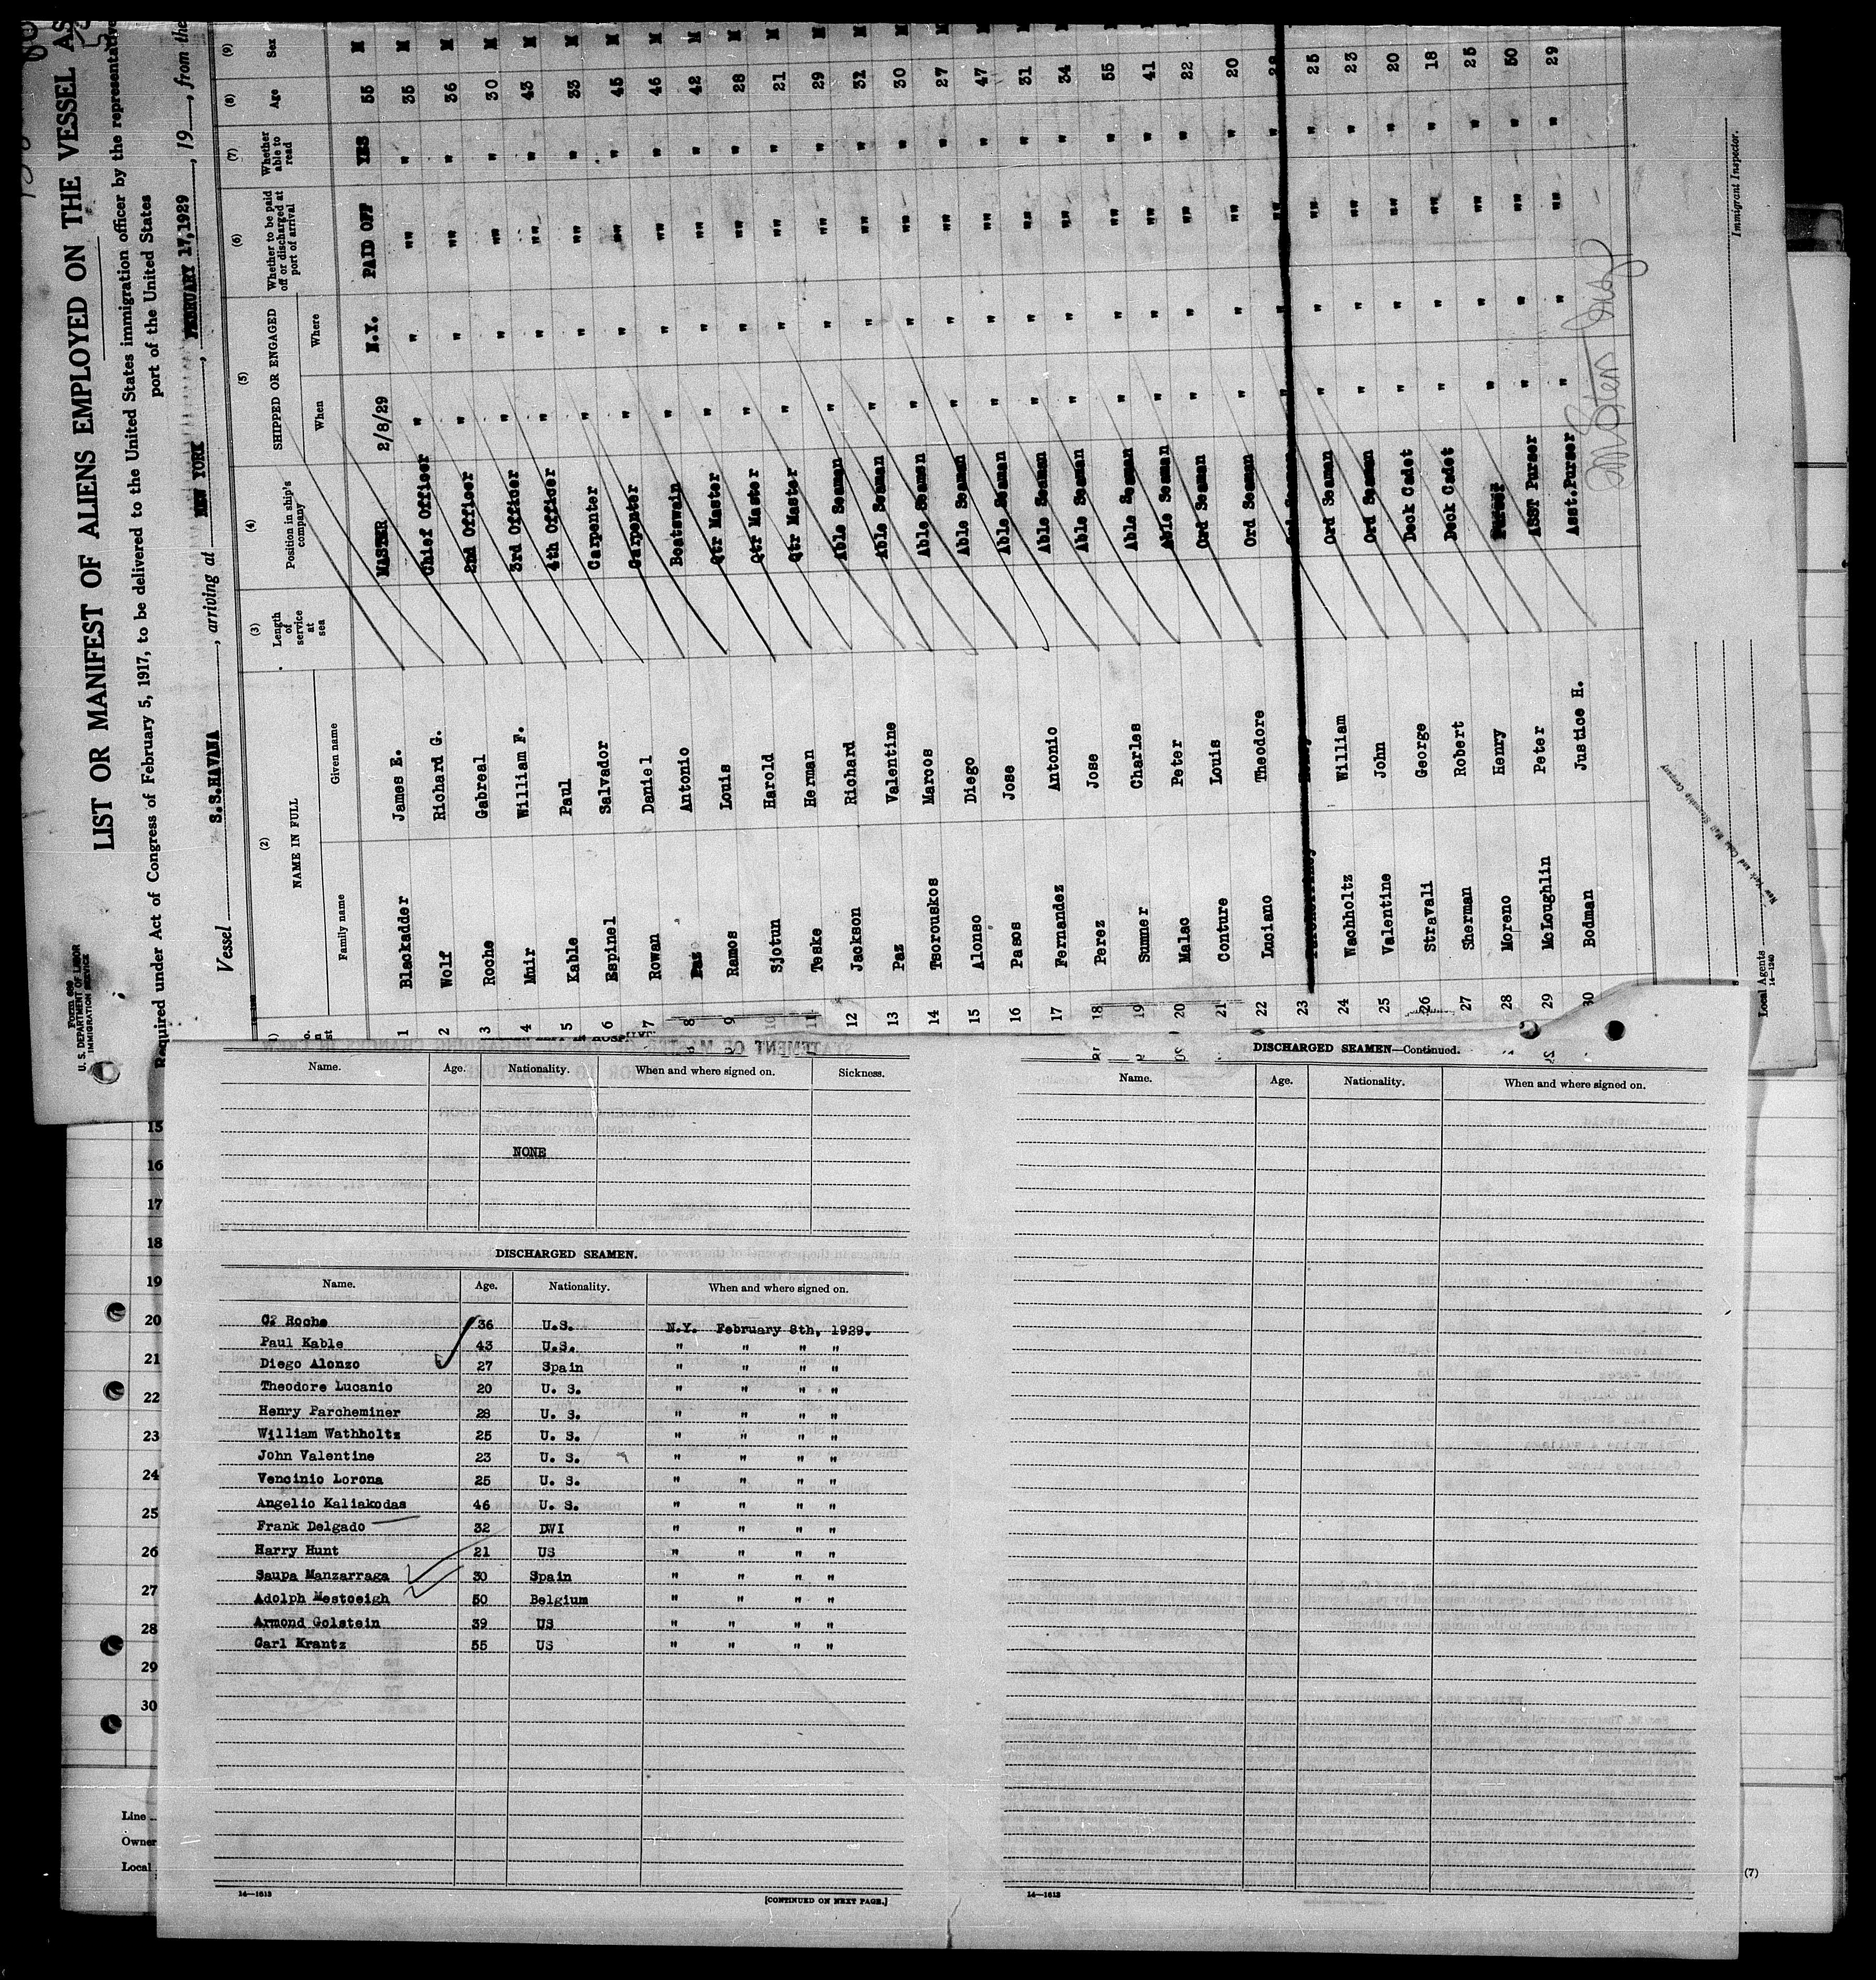 Form 689
U. S. DEPARTMENT OF LABOR
IMMIGRATION SERVICE
LIST OR MANIFEST OF ALIENS EMPLOYED ON THE VESSEL AS
Required under Act of Congress of February 5, 1917, to be delivered to the United States immigration officer by the representative
port of the United States
Vessel S.S.HAVANA, arriving at NEW YORK, FEBRUARY 17,1929, 19__, from the
(2) (3) (4) (5) (6) (7) (8) (9)
NAME IN FULL Length of service at sea Position in ship's company SHIPPED OR ENGAGED Whether to be paid off or discharged at port of arrival Whether able to read Age Sex
Family name Given name When Where
1 Blackadder James E. MASTER 2/8/29 N.Y. PAID OFF YES 55 M
2 Wolf Richard G. Chief Officer " " "" " 35 M
3 Roche Gabreal 2nd Officer " " "" " 36 M
4 Muir William F. 3rd Officer " " "" " 30 M
5 Kable Paul 4th Officer " " "" " 43 M
6 Espinel Salvador Carpenter " " "" " 33 M
7 Rowan Daniel Carpenter " " "" " 45 M
8 Paz Antonio Boatswain " " "" " 46 M
9 Ramos Louis Qtr Master " " "" " 42 M
10 Sjotun Harold Qtr Master " " "" " 28 M
11 Teske Herman Qtr Master " " "" " 21 M
12 Jackson Richard Able Seaman " " "" " 29 M
13 Paz Valentine Able Seaman " " "" " 32 M
14 Tsorouskos Marcos Able Seaman " " "" " 30 M
15 Alonso Diego Able Seaman " " "" " 27 M
16 Pasos Jose Able Seaman " " "" " 47 M
17 Fernandez Antonio Able Seaman " " "" " 31 M
18 Perez Jose Able Seaman " " "" " 34 M
19 Sumner Charles Able Seaman " " "" " 55 M
20 Malac Peter Able Seaman " " "" " 41 M
21 Conture Louis Ord Seaman " " "" " 22
22 Luciano Theodore Ord Seaman " " "" " 20
23 " " "" " 28
24 Wachholtz William Ord Seaman " " "" " 25
25 Valentine John Ord Seaman " " "" " 23
26 Stravali George Deck Cadet " " "" " 20
27 Sherman Robert Deck Cadet " " "" " 18
28 Moreno Henry Purser " " "" " 25
29 McLoughlin Peter ASST Purser " " "" " 50
30 Bodman Justice H. Asst.Purser " " "" " 29
Immigrant Inspector.
New York and Cuba Mail Steamship Company
Local Agents
14—1240
Name. Age. Nationality. When and where signed on. Sickness.
NONE
DISCHARGED SEAMEN.
Name. Age. Nationality. When and where signed on.
G? Roche 36 U.S. N.Y. February 8th, 1929.
Paul Kable 43 U.S. " " " "
Diego Alonzo 27 Spain " " " "
Theodore Lucanio 20 U. S. " " " "
Henry Parcheminer 28 U. S. " " " "
William Wathholtz 25 U. S. " " " "
John Valentine 23 U. S. " " " "
Vencinio Lorona 25 U. S. " " " "
Angelio Kaliakodas 46 U. S. " " " "
Frank Delgado 32 DWI " " " "
Harry Hunt 21 US " " " "
Saupa Manzarraga 30 Spain " " " "
Adolph Mestoeigh 50 Belgium " " " "
Armond Golstein 39 US " " " "
Carl Krantz 55 US " " " "
14—1613
[CONTINUED ON NEXT PAGE.]
DISCHARGED SEAMEN—Continued.
Name. Age. Nationality. When and where signed on.
14—1613
15
16
17
18
19
20
21
22
23
24
25
26
27
28
29
30
Line
Owner
Local
(7)